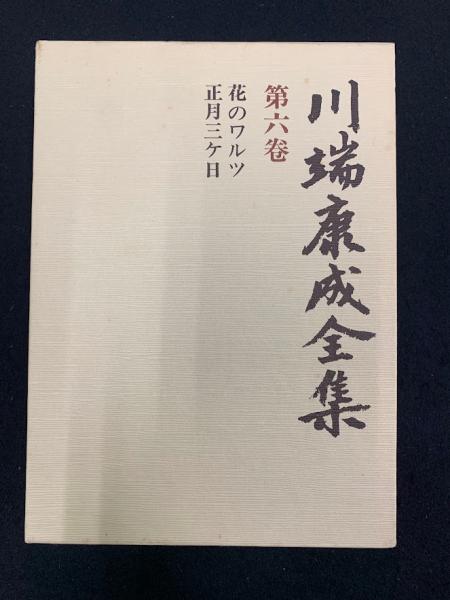 川端康成全集
第六巻
花のワルツ
正月三ケ日